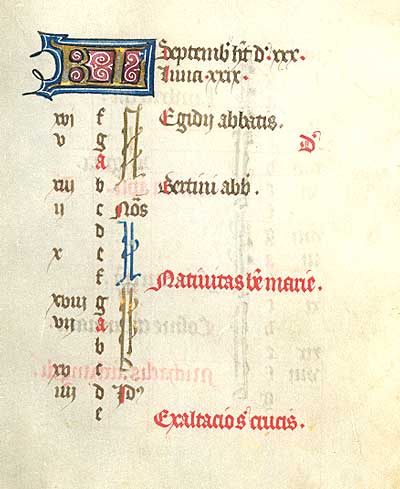 KL Septemb ht d. xxx.
luna. xxix.
xvi f Egidij abbatis.
v g D
a
xiii b Bertini abb.
ii c Nos
d
x e
f Natiuitas be marie.
xviii g
vii a
b
xv c
iiii d Id
e Exaltacio s crucis.